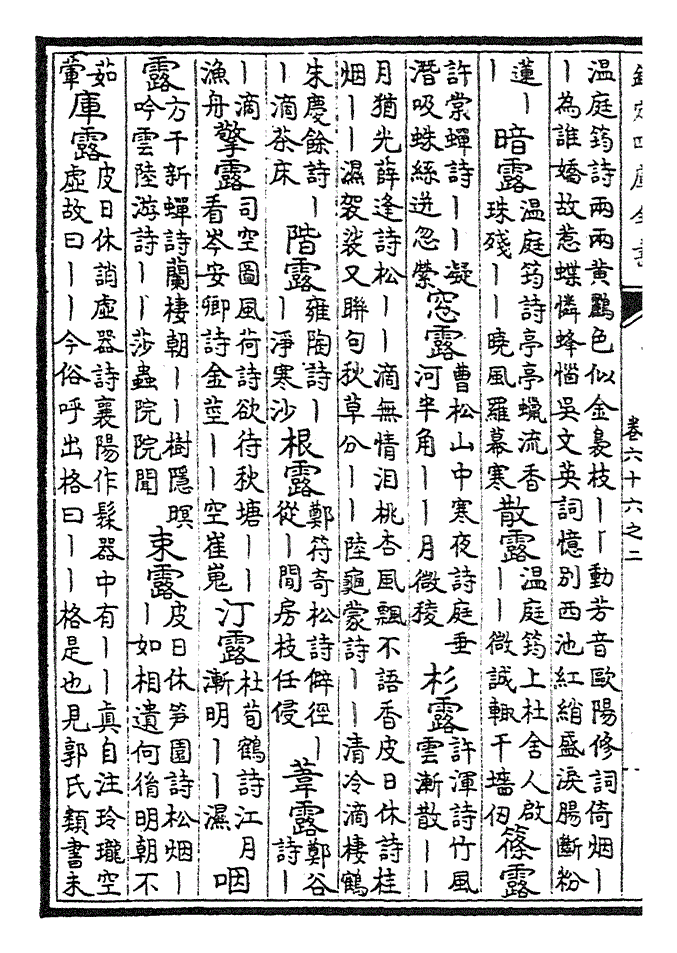 欽定四庫全書
卷六十六之二
溫庭筠詩兩兩黃鸝色似金裊枝丨丨動芳音歐陽修詞倚烟丨
丨為誰嬌故惹蝶憐蜂惱吳文英詞憶別西池紅綃盛淚腸斷粉
蓮丨
丨
暗露
溫庭筠詩亭亭蠟流香
珠殘丨丨曉風羅幕寒
散露
溫庭筠上杜舍人啟
丨丨微誠輒干墻仞
篠露
許棠蟬詩丨丨凝
潛吸蛛絲迸忽縈
窓露
曹松山中寒夜詩庭垂
河半角丨丨月微稜
杉露
許渾詩竹風
雲漸散丨丨
月猶光薛逢詩松丨丨滴無情泪桃杏風飄不語香皮日休詩桂
烟丨丨濕袈裟又聯句秋草分丨丨陸龜蒙詩丨丨清泠滴棲鶴
朱慶餘詩丨
丨滴茶床
階露
雍陶詩丨
丨淨寒沙
根露
鄭符奇松詩僻徑丨
從丨閒房枝任侵
葦露
鄭谷
詩丨
丨滴
漁舟
擎露
司空圖風荷詩欲待秋塘丨丨
看岑安卿詩金莖丨丨空崔嵬
汀露
杜荀鶴詩江月
漸明丨丨濕
咽
露
方干新蟬詩蘭棲朝丨丨樹隱暝
吟雲陸游詩丨丨莎蟲院院聞
束露
皮日休笋園詩松烟丨
丨如相遺何胤明朝不
茹
葷
庫露
皮日休誚虛器詩襄陽作髹器中有丨丨真自注玲瓏空
虛故曰丨丨今俗呼出格曰丨丨格是也見郭氏類書未